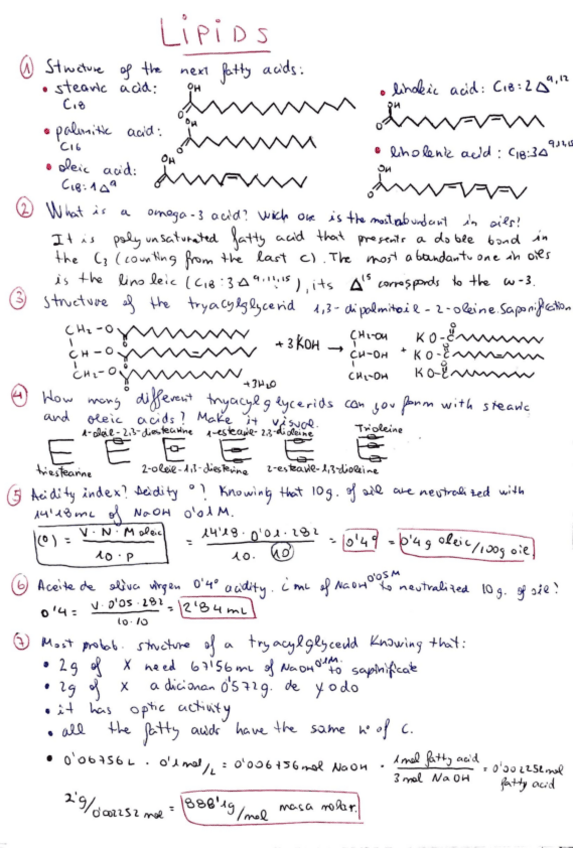 LIPIDS
① Structure of the next fatty acids:
• stearic acid:
C18
OH
O
• linoleic acid: C18:2Δ9,12
OH
O
• palmitic acid:
C16
OH
O
• oleic acid:
C18:1Δ9
OH
O
• linolenic acid: C18:3Δ
OH
O
② What is a omega-3 acid? Wich one is the most abundant in oils?
It is polyunsaturated fatty acid that presents a doble bond in
the C3 (counting from the last C). The most abundant one in oils
is the linoleic (C18:3Δ9,12,15), its Δ15 corresponds to the ω-3.
③ Structure of the tryacylglycerid 1,3-dipalmitoil-2-oleine. Saponification
CH2-O
CH-O
CH2-O
+3KOH →
CH2-OH
CH-OH
CH2-OH
+
KO-C
KO-C
KO-C
+3H2O
④ How many different tryacylglycerids can you form with stearic
and oleic acids? Make it visual.
1-oleil-2,3-diestearine
1-estearil-2,3-dioleine
Trioleine
triestearine
2-oleil-1,3-diesterine
2-estearil-1,3-dioleine
⑤ Acidity index? Acidity º? Knowing that 10g. of oil are neutralized with
14'18 mL of NaOH 0'01M.
(º) = V·N·M oleic / 10·P = 14'18·0'01·282 / 10·10 = 0'4º = 0'4g oleic/100g oil
⑥ Aceite de oliva virgen 0'4º acidity. ¿mL of NaOH 0'05M to neutralized 10g. of oil?
0'4 = V·0'05·282 / 10·10 = 2'84 mL
⑦ Most probab. structure of a tryacylglycerid knowing that:
• 2g of X need 67'56 mL of NaOH 0'1M. to sapinificate
• 2g of X adicionan 0'572g. de yodo
• it has optic activity
• all the fatty acids have the same nº of C.
• 0'06756L · 0'1mol/L = 0'006756mol NaOH · 1mol fatty acid / 3mol NaOH = 0'002252mol fatty acid
2'g/0'002252 mol = 888'1g/mol masa molar.